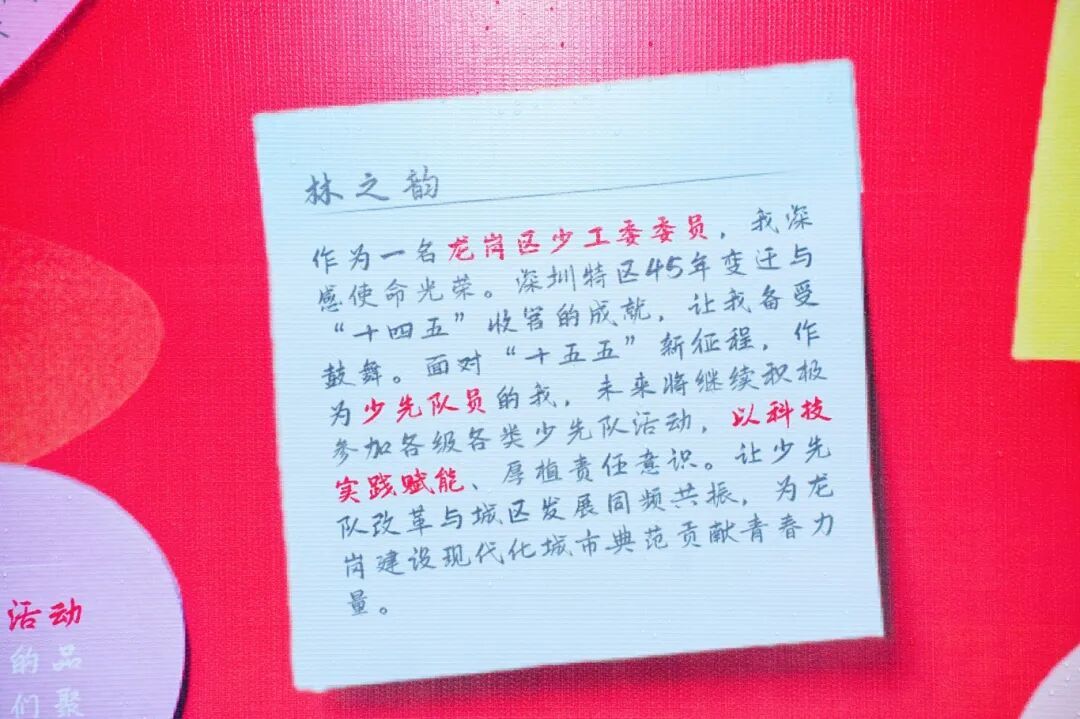 林之韵
作为一名龙岗区少工委委员，我深
感使命光荣。深圳特区45年变迁与
“十四五”收官的成就，让我备受
鼓舞。面对“十五五”新征程，作
为少先队员的我，未来将继续积极
参加各级各类少先队活动，以科技
实践赋能、厚植责任意识。让少先
队改革与城区发展同频共振，为龙
岗建设现代化城市典范贡献青春力
量。
活动
的品
们聚